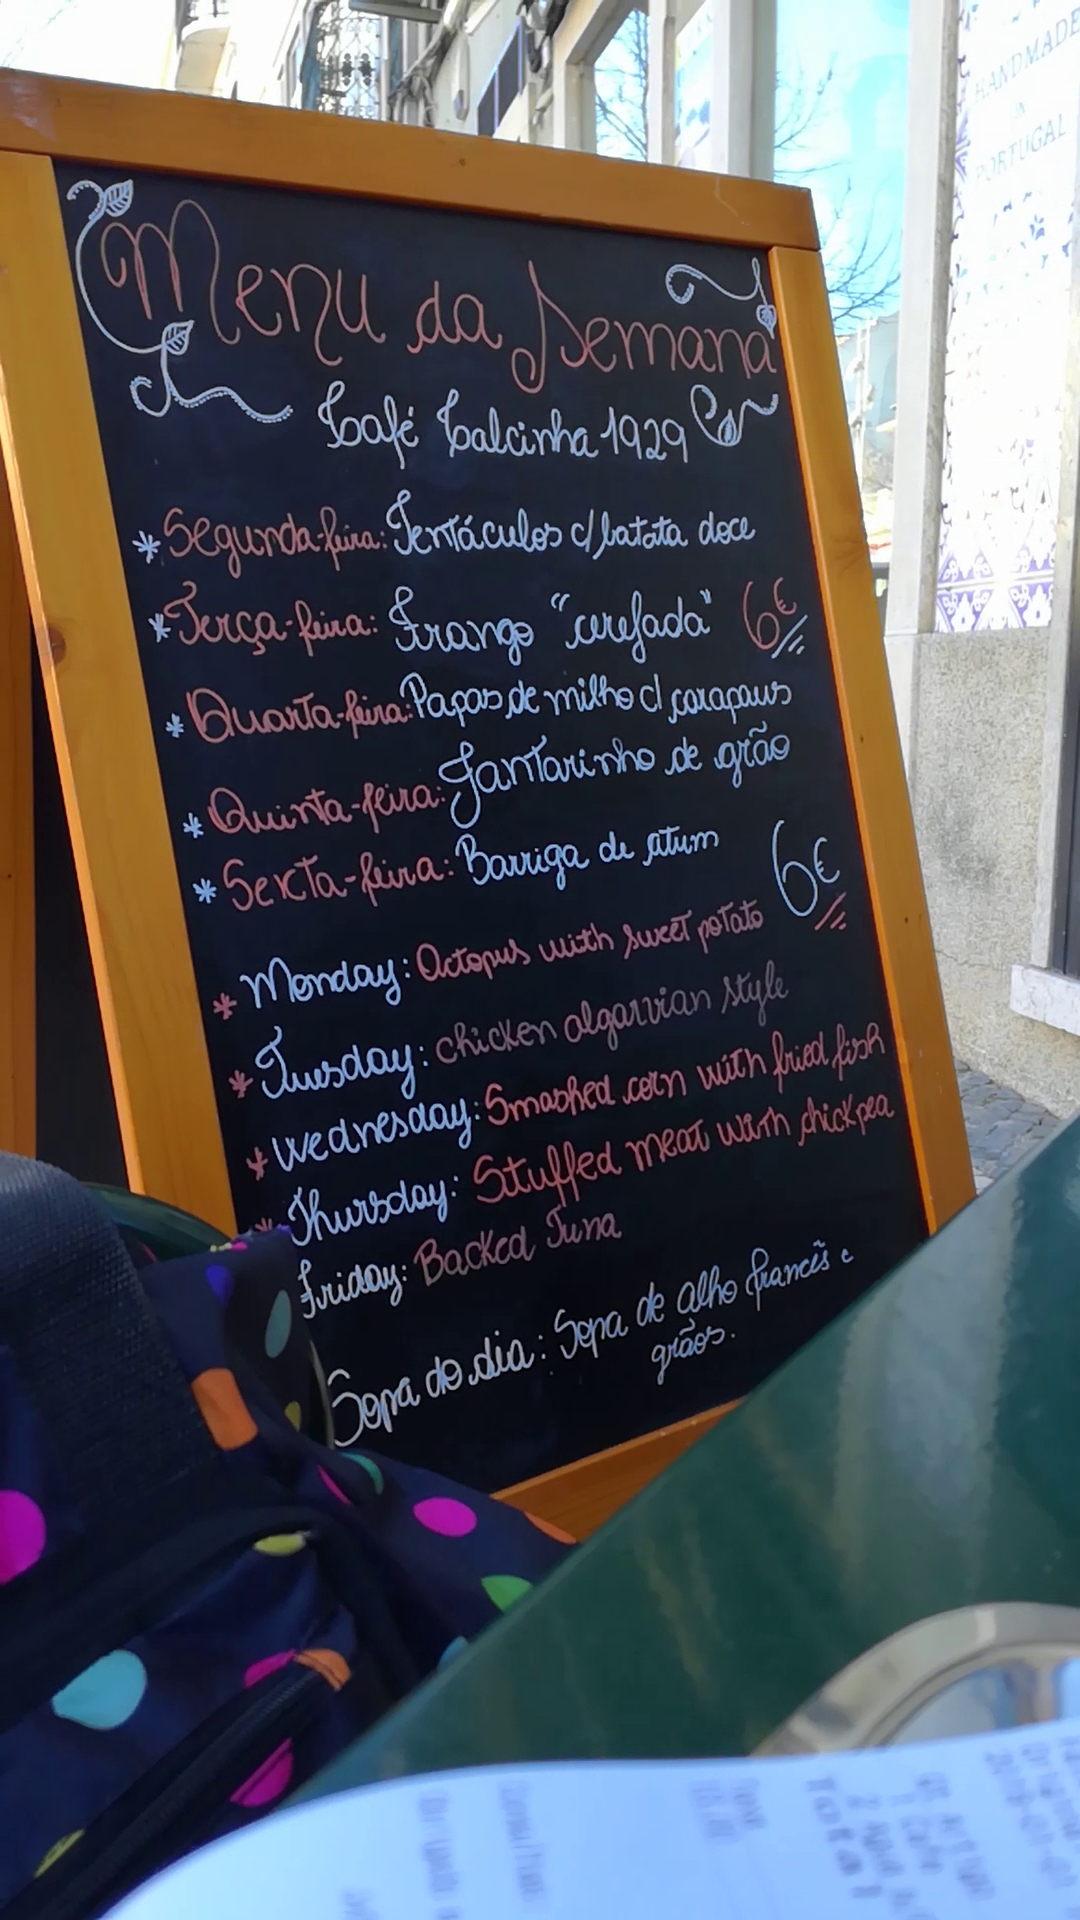 Menu da Semana
Café Calcinha 1929
* Segunda-feira: Tentáculos c/ batata doce
* Terça-feira: Frango "cerefada" 6€
* Quarta-feira: Papas de milho c/ carapaus
* Quinta-feira: Jantarinho de grão
* Sexta-feira: Barriga de atum
6€
* Monday: Octopus with sweet potato
* Tuesday: chicken algarvian style
* Wednesday: Smashed corn with fried fish
* Thursday: Stuffed meat with chickpea
Friday: Backed Tuna
Sopa do dia: Sopa de alho francês e
grãos.
HANDMADE
IN
PORTUGAL
Total